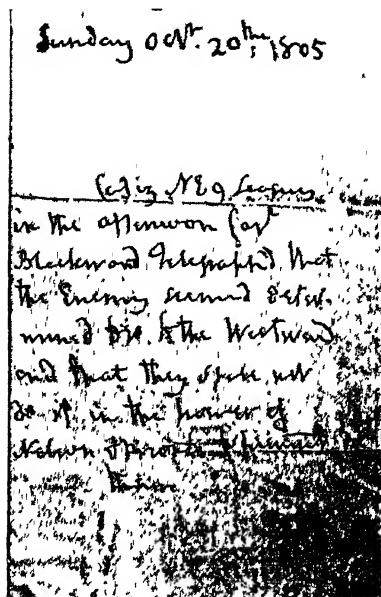 Sunday Oct. 20th, 1805
Cadiz NE 9 Leagues
in the afternoon Capt
Blackwood Telegraphd that
the Enemy seemed deter-
mined to go to the Westward
and that they shall not
do if in the power of
Nelson & Bronte to prevent
them